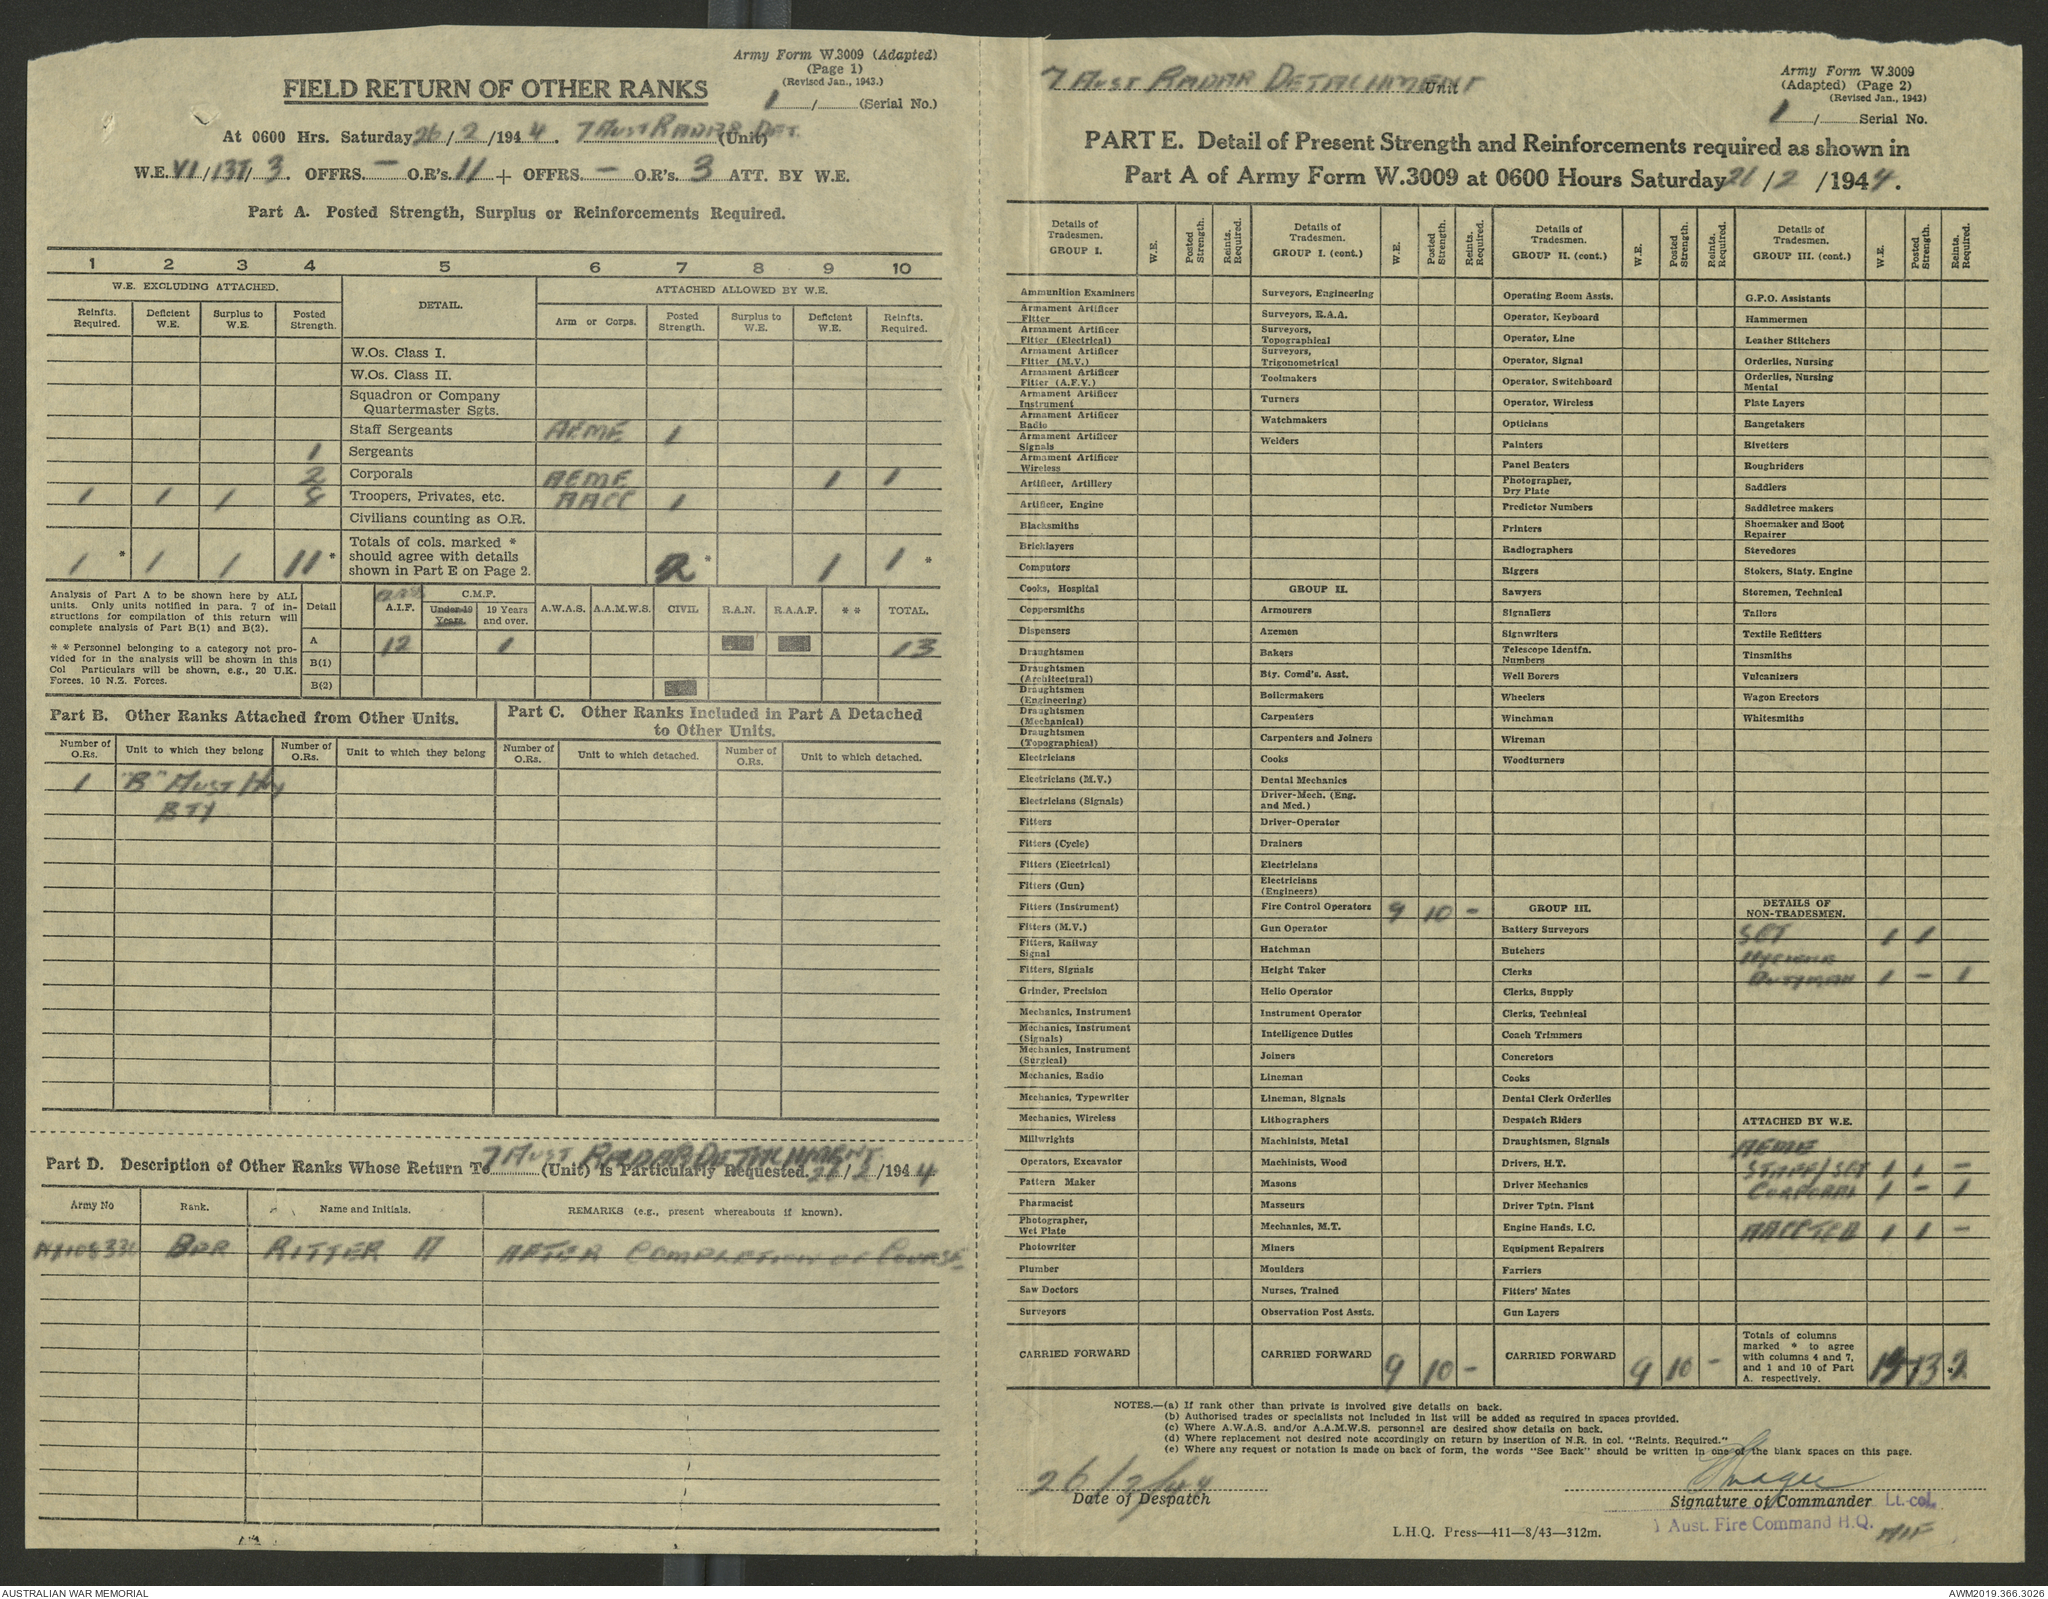 Army Form W.3009 (Adapted)
(Page 1)
(Revised Jan., 1943.)
FIELD RETURN OF OTHER RANKS
1 / (Serial No.)
At 0600 Hrs. Saturday 26/2/1944. 7 AUST RADAR DET. (Unit)
W.E. VI/137/3. OFFRS. - O.R's. 11 + OFFRS. - O.R's. 3 ATT. BY W.E.
Part A. Posted Strength, Surplus or Reinforcements Required.
1 2 3 4 5 6 7 8 9 10
W.E. EXCLUDING ATTACHED. DETAIL. ATTACHED ALLOWED BY W.E.
Reinfts. Required. Deficient W.E. Surplus to W.E. Posted Strength. Arm or Corps. Posted Strength. Surplus to W.E. Deficient W.E. Reinfts. Required.
W.Os. Class I.
W.Os. Class II.
Squadron or Company
Quartermaster Sgts.
Staff Sergeants AEME 1
1 Sergeants
2 Corporals AEME 1 1
1 1 1 8 Troopers, Privates, etc. AACC 1
Civilians counting as O.R.
Totals of cols. marked *
should agree with details
shown in Part E on Page 2.
1 * 1 1 11 * 2 * 1 1 *
Analysis of Part A to be shown here by ALL
units. Only units notified in para. 7 of in-
structions for compilation of this return will
complete analysis of Part B(1) and B(2).
* * Personnel belonging to a category not pro-
vided for in the analysis will be shown in this
Col Particulars will be shown, e.g., 20 U.K.
Forces, 10 N.Z. Forces.
Detail A.I.F. C.M.F. Under 19 Years. 19 Years and over. A.W.A.S. A.A.M.W.S. CIVIL R.A.N. R.A.A.F. * * TOTAL.
A 12 1 13
B(1)
B(2)
Part B. Other Ranks Attached from Other Units.
Part C. Other Ranks Included in Part A Detached
to Other Units.
Number of O.Rs. Unit to which they belong Number of O.Rs. Unit to which they belong Number of O.Rs. Unit to which detached. Number of O.Rs. Unit to which detached.
1 "B" AUST Hvy
BTY
Part D. Description of Other Ranks Whose Return To 7 AUST RADAR DETACHMENT (Unit) is Particularly Requested. 26/2/1944
Army No Rank. Name and Initials. REMARKS (e.g., present whereabouts if known).
BDR RITTER A AFTER COMPLETION OF COURSE
7 AUST RADAR DETACHMENT Unit
Army Form W.3009
(Adapted) (Page 2)
(Revised Jan., 1943)
1 / Serial No.
PART E. Detail of Present Strength and Reinforcements required as shown in
Part A of Army Form W.3009 at 0600 Hours Saturday 26/2/1944.
Details of Tradesmen. GROUP I. W.E. Posted Strength. Reints. Required.
Ammunition Examiners
Armament Artificer Fitter
Armament Artificer Fitter (Electrical)
Armament Artificer Fitter (M.V.)
Armament Artificer Fitter (A.F.V.)
Armament Artificer Instrument
Armament Artificer Radio
Armament Artificer Signals
Armament Artificer Wireless
Artificer, Artillery
Artificer, Engine
Blacksmiths
Bricklayers
Computors
Cooks, Hospital
Coppersmiths
Dispensers
Draughtsmen
Draughtsmen (Architectural)
Draughtsmen (Engineering)
Draughtsmen (Mechanical)
Draughtsmen (Topographical)
Electricians
Electricians (M.V.)
Electricians (Signals)
Fitters
Fitters (Cycle)
Fitters (Electrical)
Fitters (Gun)
Fitters (Instrument)
Fitters (M.V.)
Fitters, Railway Signal
Fitters, Signals
Grinder, Precision
Mechanics, Instrument
Mechanics, Instrument (Signals)
Mechanics, Instrument (Surgical)
Mechanics, Radio
Mechanics, Typewriter
Mechanics, Wireless
Millwrights
Operators, Excavator
Pattern Maker
Pharmacist
Photographer, Wet Plate
Photowriter
Plumber
Saw Doctors
Surveyors
CARRIED FORWARD
Details of Tradesmen. GROUP I. (cont.) W.E. Posted Strength. Reints. Required.
Surveyors, Engineering
Surveyors, R.A.A.
Surveyors, Topographical
Surveyors, Trigonometrical
Toolmakers
Turners
Watchmakers
Welders
GROUP II.
Armourers
Axemen
Bakers
Bty. Comd's. Asst.
Boilermakers
Carpenters
Carpenters and Joiners
Cooks
Dental Mechanics
Driver-Mech. (Eng. and Med.)
Driver-Operator
Drainers
Electricians
Electricians (Engineers)
Fire Control Operators 9 10 -
Gun Operator
Hatchman
Height Taker
Helio Operator
Instrument Operator
Intelligence Duties
Joiners
Lineman
Lineman, Signals
Lithographers
Machinists, Metal
Machinists, Wood
Masons
Masseurs
Mechanics, M.T.
Miners
Moulders
Nurses, Trained
Observation Post Assts.
CARRIED FORWARD 9 10 -
Details of Tradesmen. GROUP II. (cont.) W.E. Posted Strength. Reints. Required.
Operating Room Assts.
Operator, Keyboard
Operator, Line
Operator, Signal
Operator, Switchboard
Operator, Wireless
Opticians
Painters
Panel Beaters
Photographer, Dry Plate
Predictor Numbers
Printers
Radiographers
Riggers
Sawyers
Signallers
Signwriters
Telescope Identfn. Numbers
Well Borers
Wheelers
Winchman
Wireman
Woodturners
GROUP III.
Battery Surveyors
Butchers
Clerks
Clerks, Supply
Clerks, Technical
Coach Trimmers
Concretors
Cooks
Dental Clerk Orderlies
Despatch Riders
Draughtsmen, Signals
Drivers, H.T.
Driver Mechanics
Driver Tptn. Plant
Engine Hands, I.C.
Equipment Repairers
Farriers
Fitters' Mates
Gun Layers
CARRIED FORWARD 9 10 -
Details of Tradesmen. GROUP III. (cont.) W.E. Posted Strength. Reints. Required.
G.P.O. Assistants
Hammermen
Leather Stitchers
Orderlies, Nursing
Orderlies, Nursing Mental
Plate Layers
Rangetakers
Rivetters
Roughriders
Saddlers
Saddletree makers
Shoemaker and Boot Repairer
Stevedores
Stokers, Staty. Engine
Storemen, Technical
Tailors
Textile Refitters
Tinsmiths
Vulcanizers
Wagon Erectors
Whitesmiths
DETAILS OF NON-TRADESMEN.
SGT 1 1
HYGIENE
DUTYMAN 1 - 1
ATTACHED BY W.E.
AEME
STAFF/SGT 1 1 -
CORPORAL 1 - 1
1 1 -
Totals of columns
marked * to agree
with columns 4 and 7,
and 1 and 10 of Part
A. respectively.
13 * 2
NOTES.—(a) If rank other than private is involved give details on back.
(b) Authorised trades or specialists not included in list will be added as required in spaces provided.
(c) Where A.W.A.S. and/or A.A.M.W.S. personnel are desired show details on back.
(d) Where replacement not desired note accordingly on return by insertion of N.R. in col. "Reints. Required."
(e) Where any request or notation is made on back of form, the words "See Back" should be written in one of the blank spaces on this page.
26/2/44
Date of Despatch
Signature of Commander Lt-col.
1 Aust. Fire Command H.Q. AIF
L.H.Q. Press—411—8/43—312m.
AUSTRALIAN WAR MEMORIAL
AWM2019.366.3026